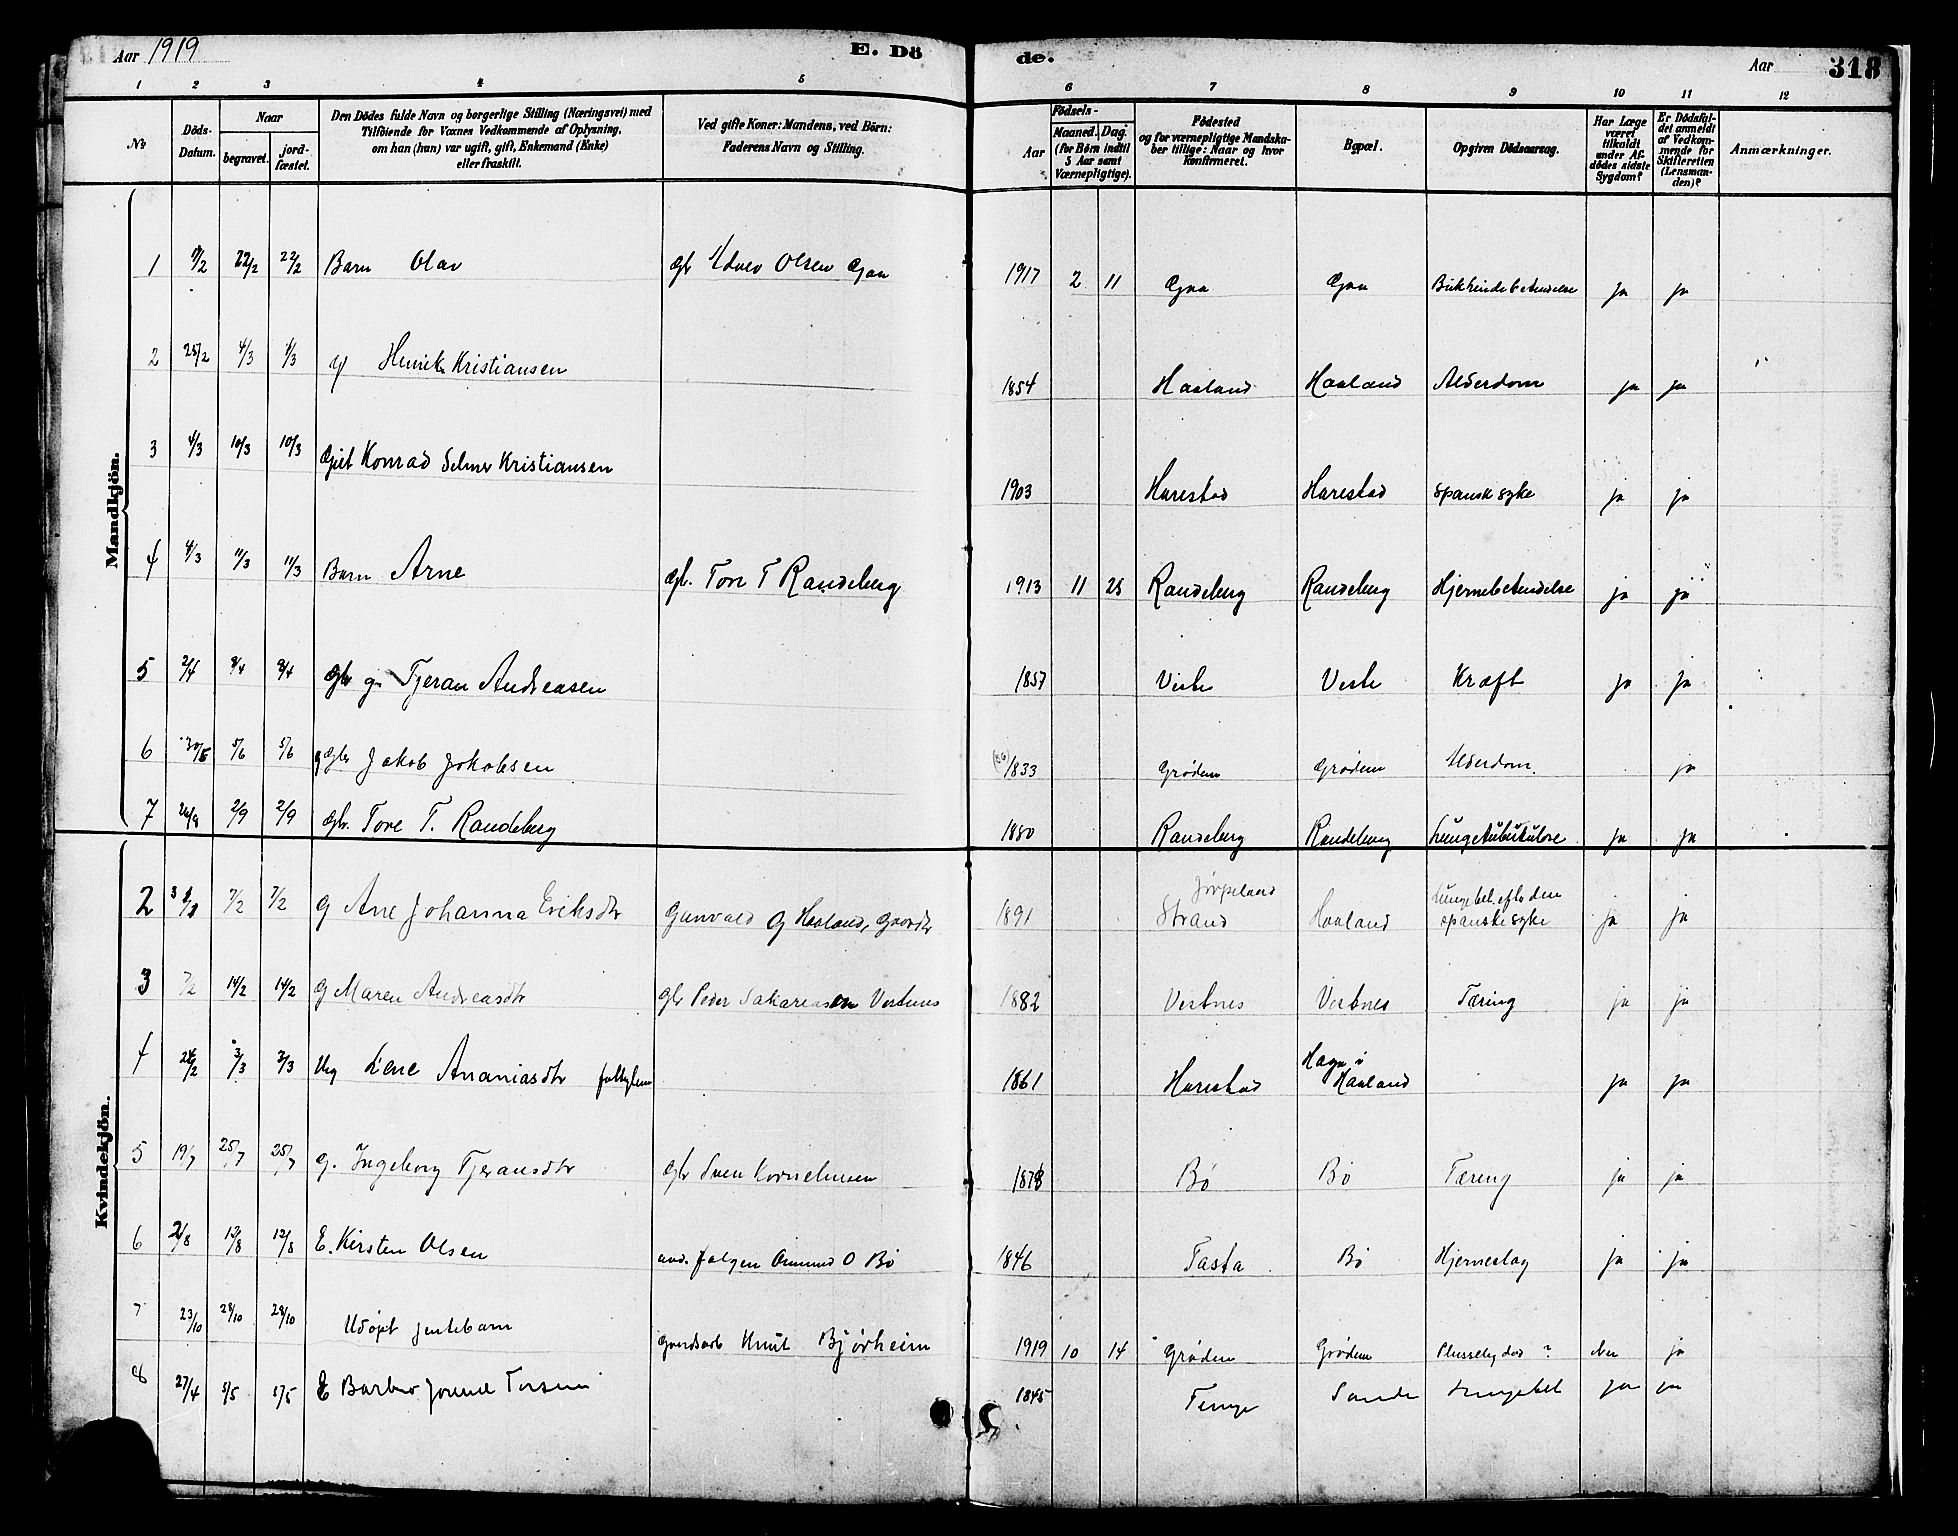 Aar 1919
E. Dö
de.
Aar
318
1 2 3 4 5 6 7 8 9 10 11 12
No
Döds-Datum.
Naar
begravet.
jord-fæstet.
Den Dödes fulde Navn og borgerlige Stilling (Næringsvei) med
Tilföiende for Voxnes Vedkommende af Oplysning,
om han (hun) var ugift, gift, Enkemand (Enke)
eller fraskilt.
Ved gifte Koner: Mandens, ved Börn:
Faderens Navn og Stilling.
Födsels-
Aar
Maaned. Dag.
(for Börn indtil
5 Aar samt
Værnepligtige).
Födested
og for værnepligtige Mandska-
ber tillige: Naar og hvor
konfirmeret.
Bopæl.
Opgiven Dödsaarsag.
Har Læge
været
tilkaldt
under Af-
dödes sidste
Sygdom?
Er Dödsfal-
det anmeldt
af Vedkom-
mende for
Skifteretten
(Lensman-
den)?
Anmærkninger.
Mandkjön.
1 22/2 22/2 Barn Olav Olsen Goa 1917 2 11 Goa Goa ja ja
2 25/2 4/3 4/3 Henrik Kristiansen 1854 Haaland Haaland Alderdom ja ja
3 4/3 10/3 10/3 Konrad Selmer Kristiansen 1903 Harestad Harestad Spansk syke ja ja
4 4/3 11/3 11/3 Barn Arne gb. Tore T Randeberg 1913 11 25 Randeberg Randeberg Hjernebetendelse ja ja
5 2/4 8/4 8/4 gbr g. Tjeran Andreasen 1857 Viste Viste Kræft ja ja
6 30/5 5/6 5/6 Jakob Jakobsen (86) 1833 Grødem Grødem Alderdom ja
7 26/8 2/9 2/9 gbr. Tore T. Randeberg 1880 Randeberg Randeberg ja ja
Kvindekjön.
2 7/2 7/2 g Ane Johanna Eriksdtr Gunvald G Haaland, 1891 Jørpeland
Strand Haaland Lungebet. efter den
spanske syke ja ja
3 7/2 14/2 14/2 g Maren Andreasdtr gbr Peder Sakariasen Vistnes 1882 Vistnes Vistnes Tæring ja ja
4 24/2 3/3 3/3 Ug Lene Ananiasdtr 1861 Harestad Hagen i
Haaland ja ja
5 19/7 25/7 25/7 g. Ingeborg Tjeransdtr gbr Sven Korneliussen 1878 Bø Bø Tæring ja ja
6 12/8 E. Kirsten Olsen Omund O Bø 1846 Tasta Bø Hjerneslag ja ja
7 23/10 28/10 28/10 Udøpt jentebarn Knut Bjørheim 1919 10 14 Grødem Grødem Plusselig død ? Nei ja
8 27/4 5/5 5/5 E 1845 Sande Lungebet ja ja